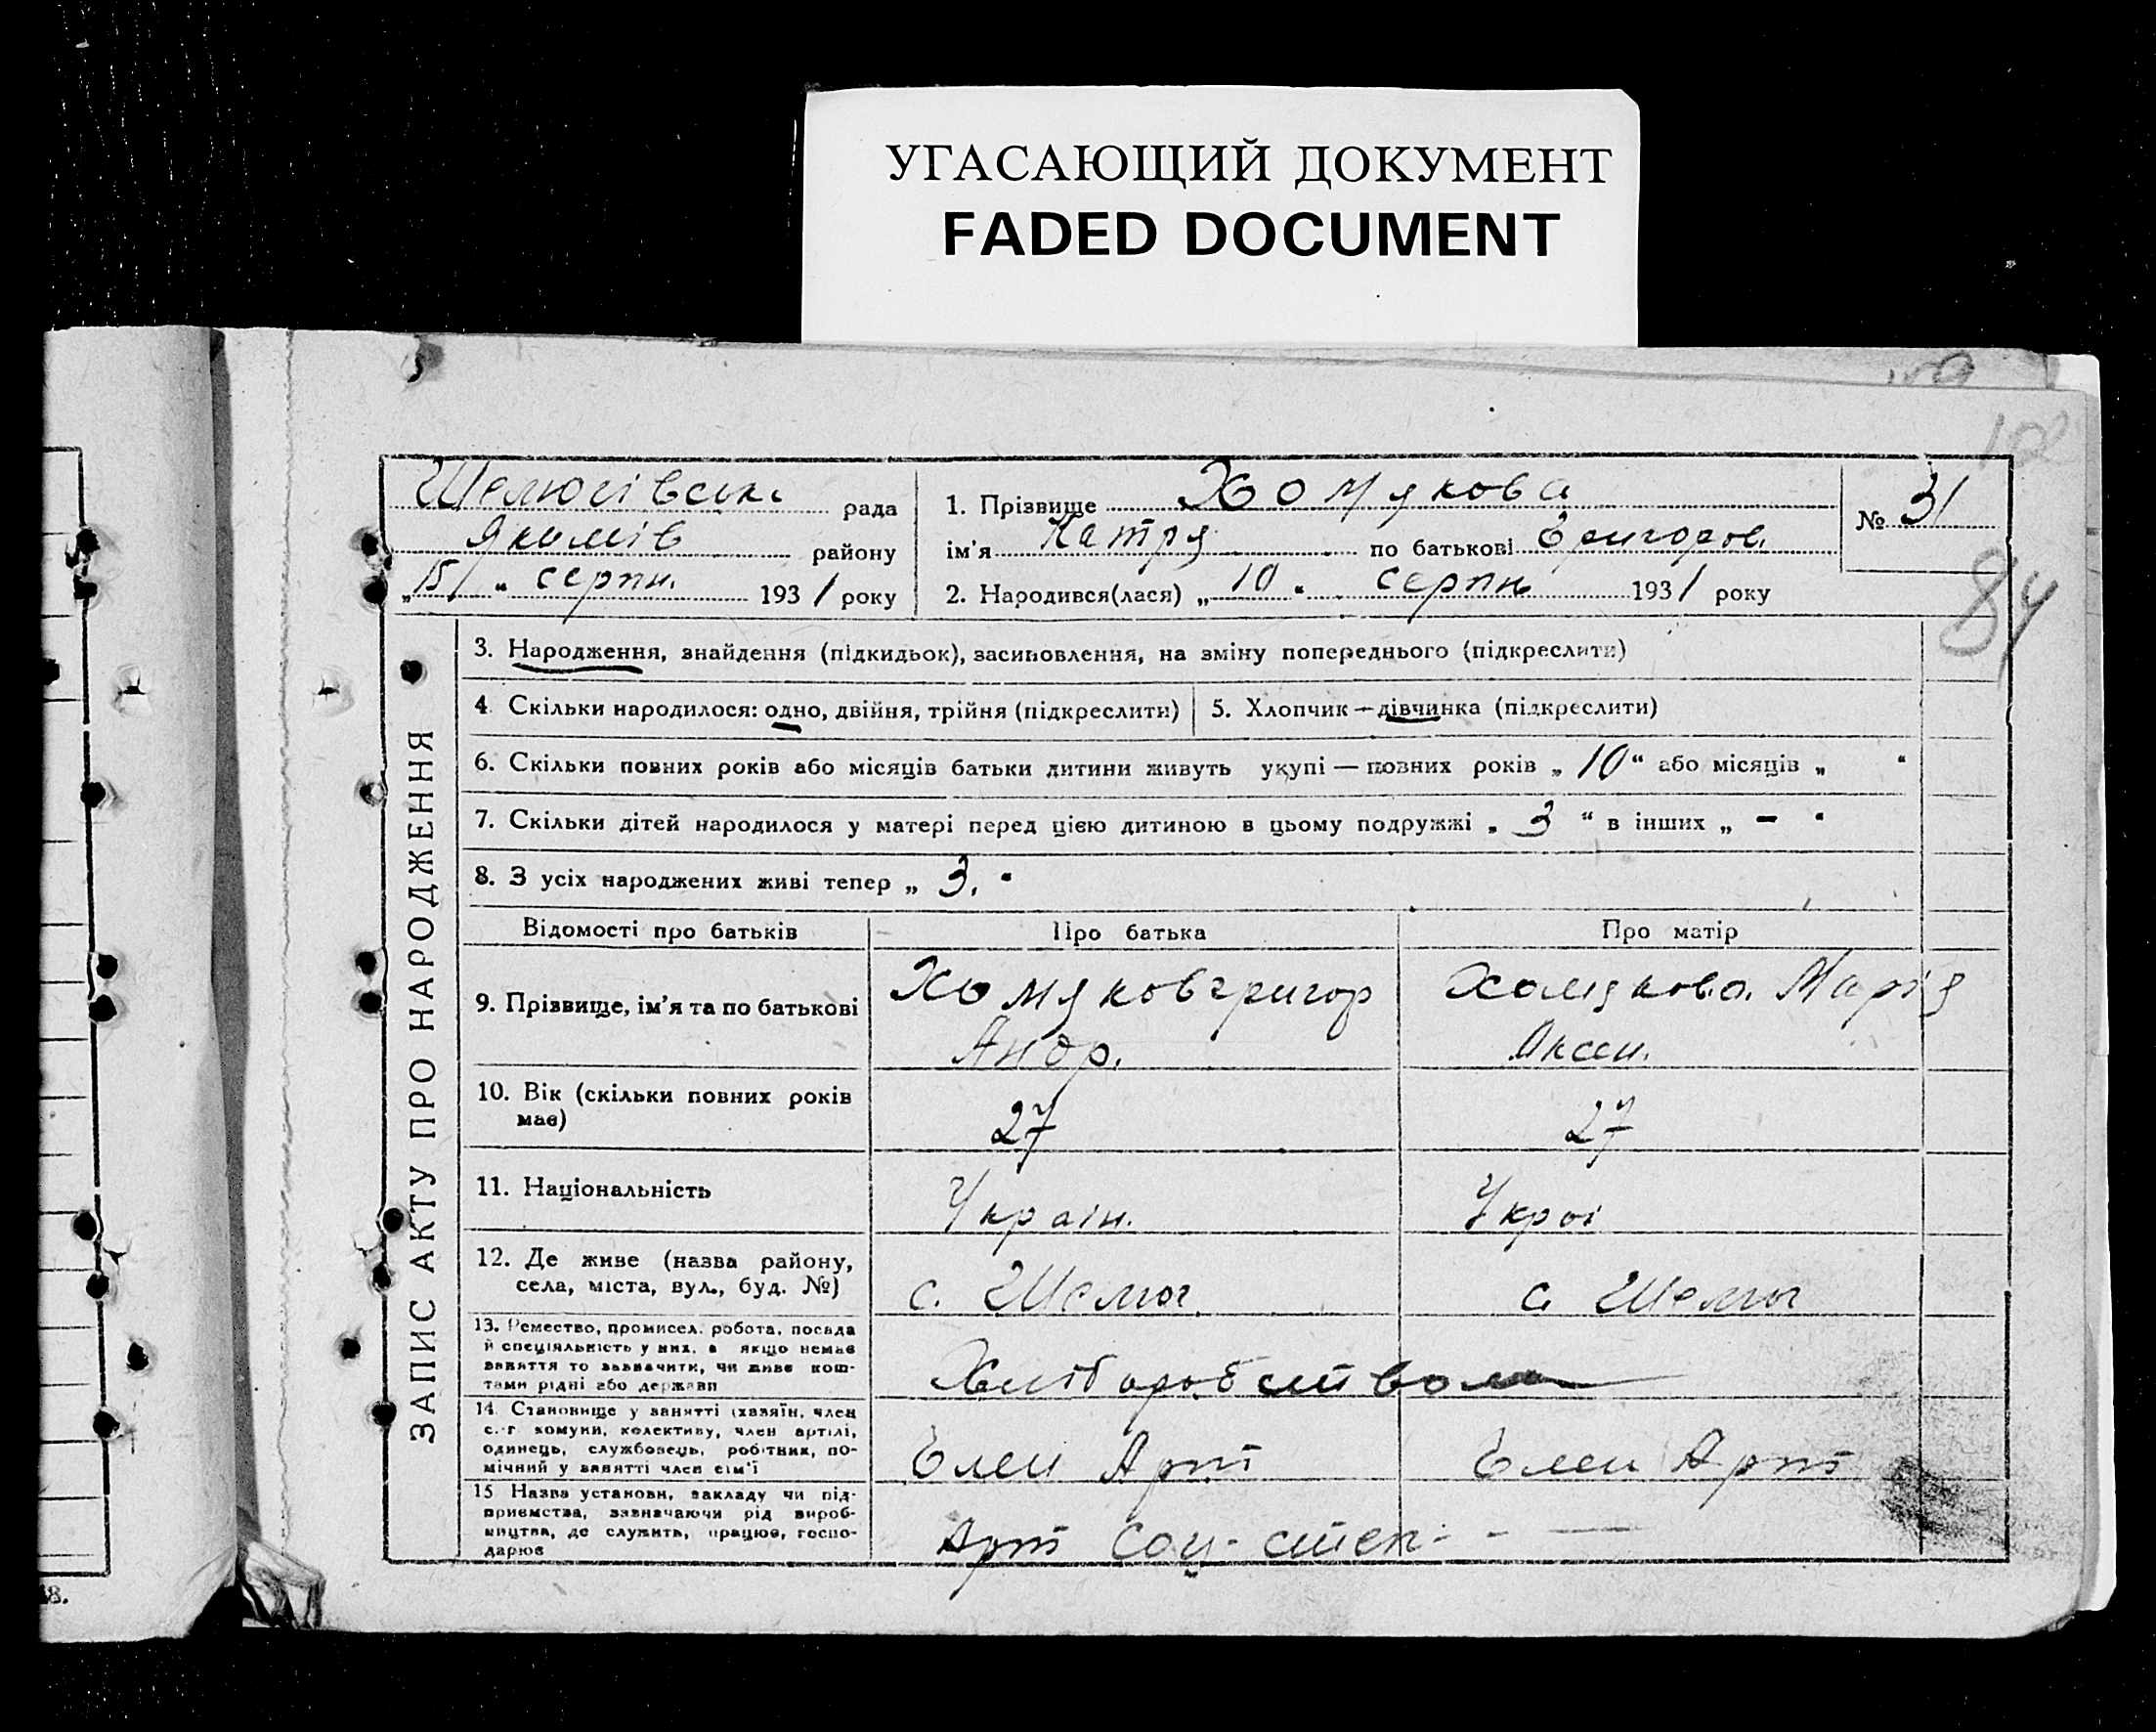 УГАСАЮЩИЙ ДОКУМЕНТ
FADED DOCUMENT
102
84
Шелюгівськ. рада
Якимів району
„15" серпн. 1931 року
1. Прізвище Хомякова
ім'я Катря по батькові Григоров.
2. Народився(лася) „10" серпнь 1931 року
№ 31
ЗАПИС АКТУ ПРО НАРОДЖЕННЯ
3. Народження, знайдення (підкидьок), засиновлення, на зміну попереднього (підкреслити)
4. Скільки народилося: одно, двійня, трійня (підкреслити)
5. Хлопчик — дівчинка (підкреслити)
6. Скільки повних років або місяців батьки дитини живуть укупі — повних років „10" або місяців „ "
7. Скільки дітей народилося у матері перед цією дитиною в цьому подружжі „3" в інших „–"
8. З усіх народжених живі тепер „3."
Відомості про батьків
Про батька
Про матір
9. Прізвище, ім'я та по батькові
Хомяков Григор
Андр.
Хомякова Марія
Аксен.
10. Вік (скільки повних років
має)
27
27
11. Національність
Україн.
Украї
12. Де живе (назва району,
села, міста, вул., буд. №)
с. Шелюг
с. Шелюг
13. Ремество, промисел, робота, посада
й спеціяльність у них, а якщо немає
заняття то зазначити, чи живе кош-
тами рідні або держави
Хліборобством
14. Становище у занятті (хазяїн, член
с.-г комуни, колективу, член артілі,
одинець, службовець, робітник, по-
мічний у занятті член сім'ї
Член Арт
Член Арт
15 Назва установи, закладу чи під-
приємства, зазначаючи рід вироб-
ництва, де служить, працює, госпо-
дарює
Арт Соц-степ - - —
48.